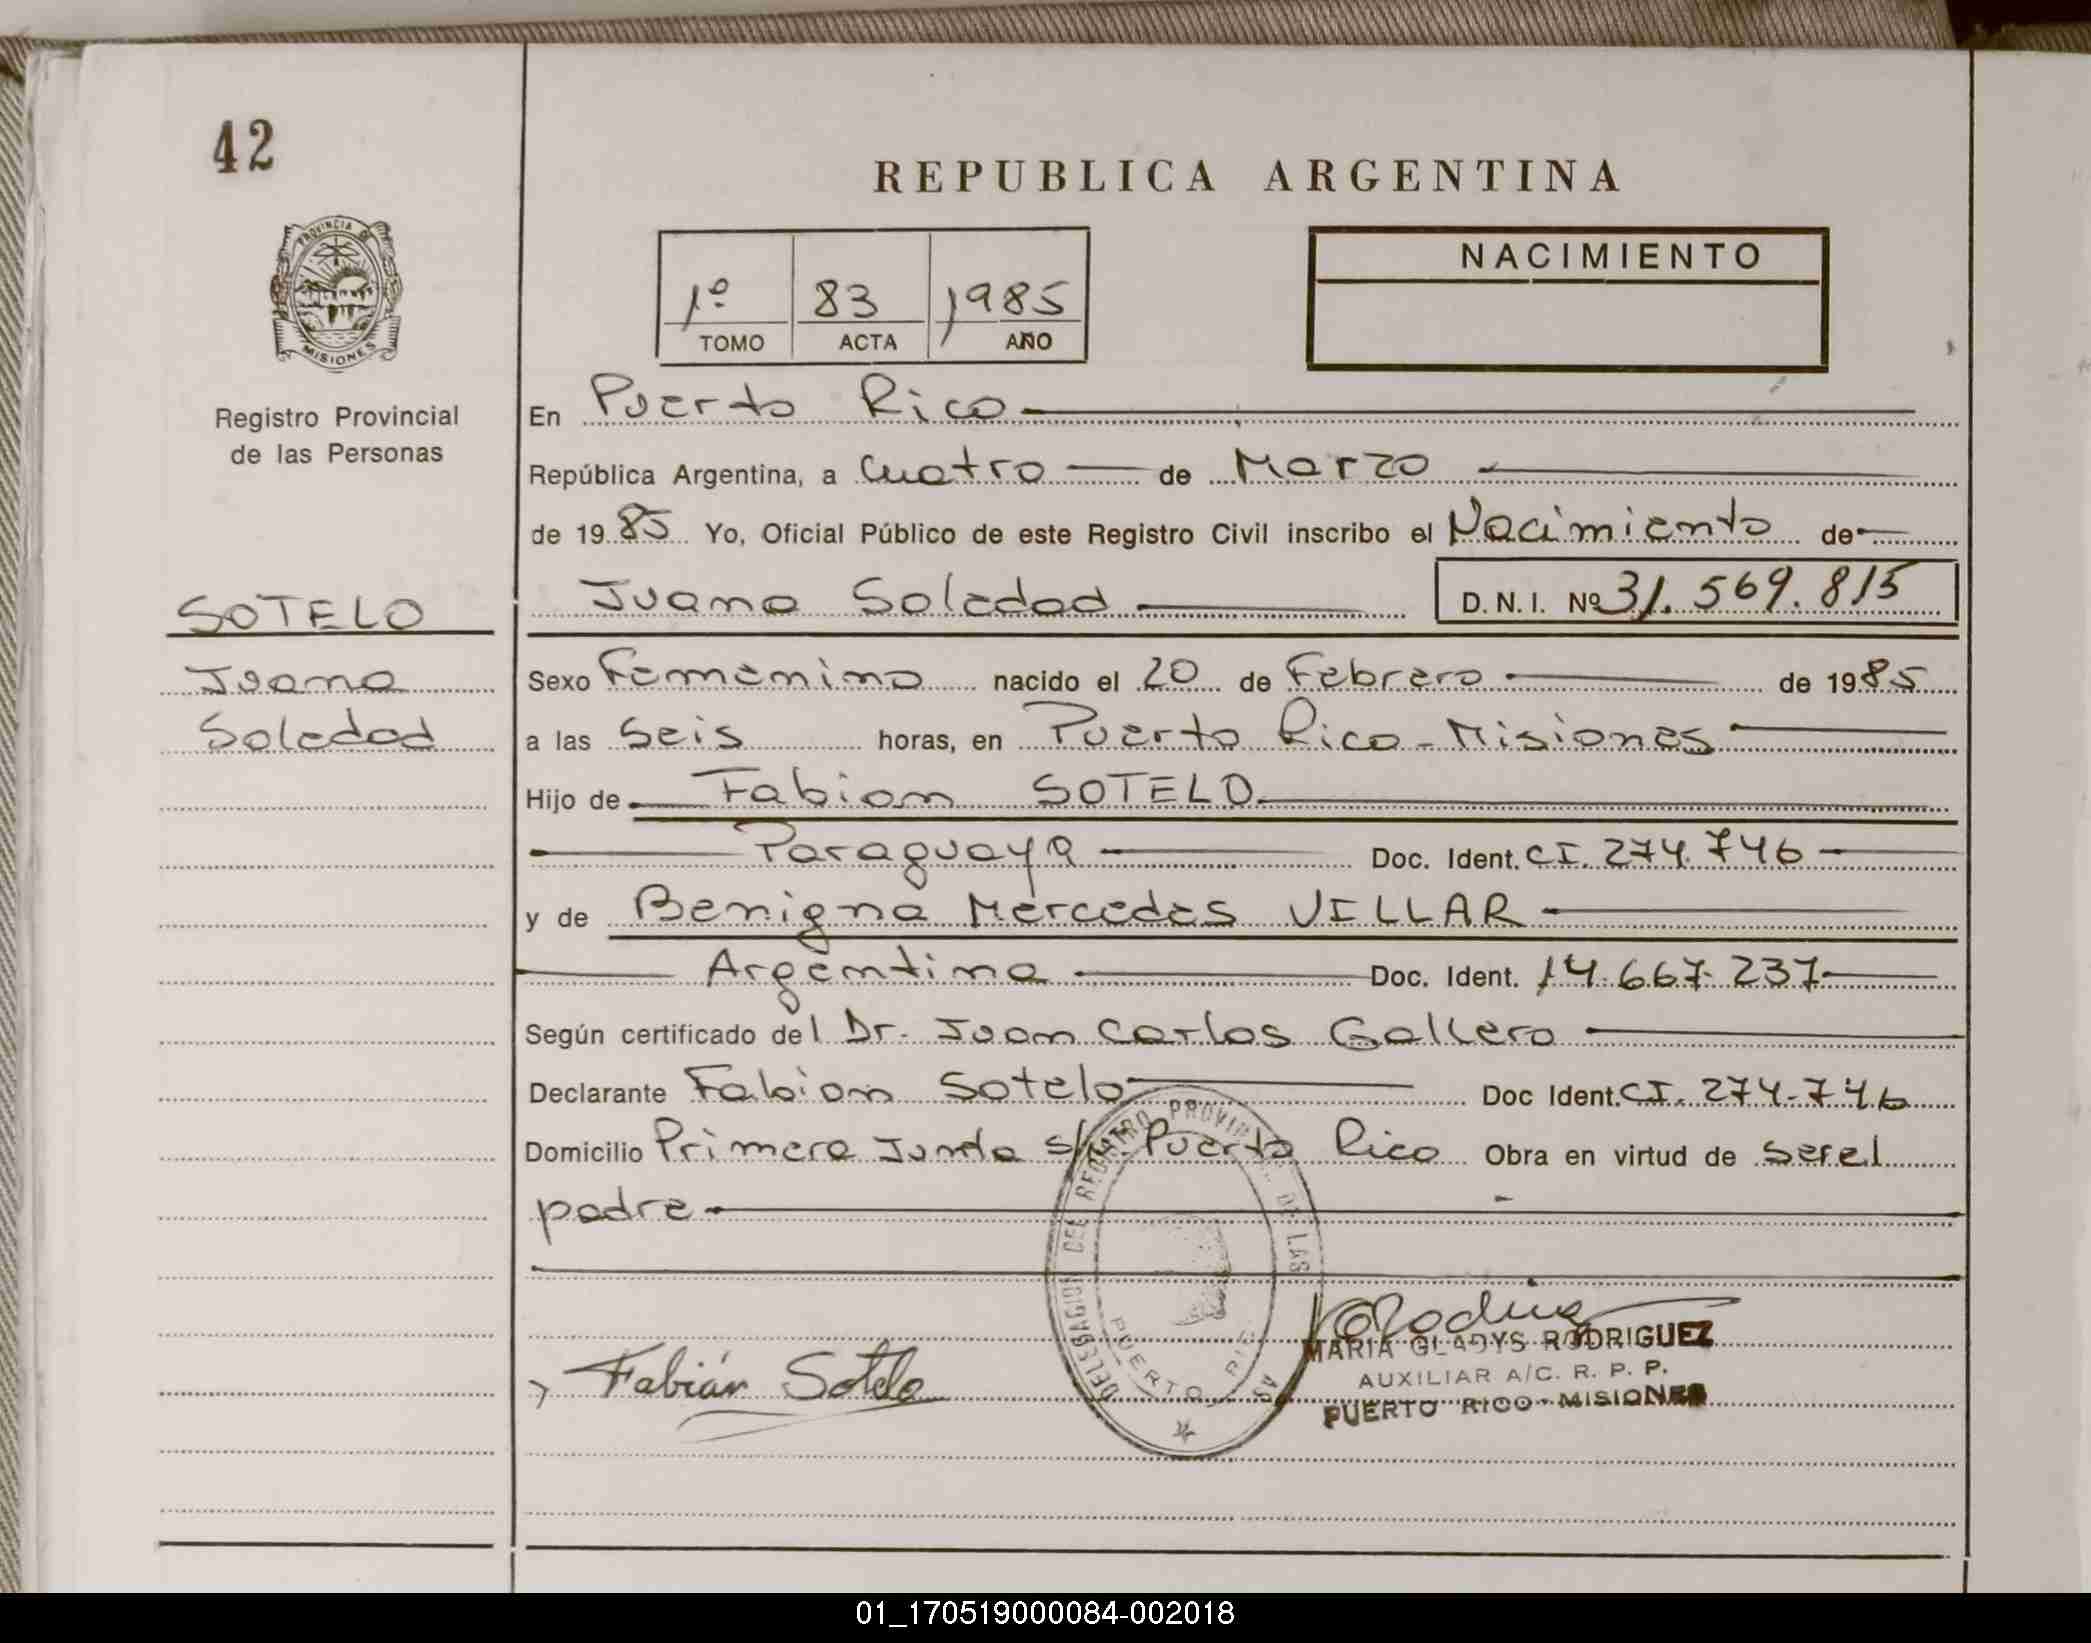 42
REPUBLICA ARGENTINA
PROVINCIA DE MISIONES
1º 83 1985
TOMO ACTA AÑO
NACIMIENTO
Registro Provincial
de las Personas
En Puerto Rico
República Argentina, a Cuatro de Marzo
de 1985 Yo, Oficial Público de este Registro Civil inscribo el Nacimiento de
SOTELO
Juana Soledad D.N.I. Nº 31.569.815
Juana
Soledad
Sexo Femenino nacido el 20 de Febrero de 1985
a las Seis horas, en Puerto Rico - Misiones
Hijo de Fabian SOTELO
Paraguaya Doc. Ident. CI. 274.746
y de Benigna Mercedes VILLAR
Argentina Doc. Ident. 14.667.237
Según certificado del Dr. Juan Carlos Gallero
Declarante Fabian Sotelo Doc Ident. CI. 274.746
Domicilio Primera Junta s/n Puerto Rico Obra en virtud de ser el
padre
DELEGACION DEL REGISTRO PROVINCIAL DE LAS
PUERTO RICO
Fabián Sotelo
MARIA GLADYS RODRIGUEZ
AUXILIAR A/C. R. P. P.
PUERTO RICO - MISIONES
01_170519000084-002018